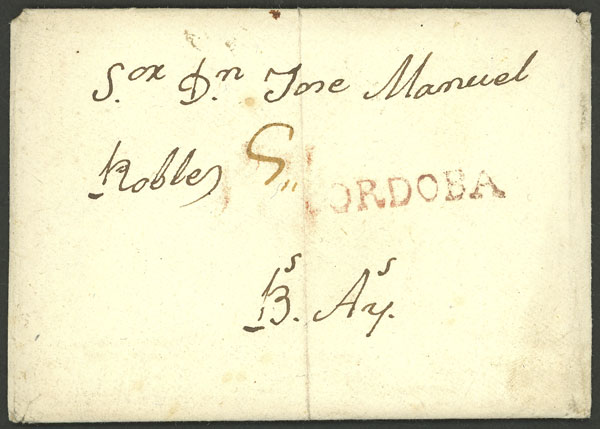 S.or D.n Jose Manuel
Robles 5,, CORDOBA
B.s Ay.s